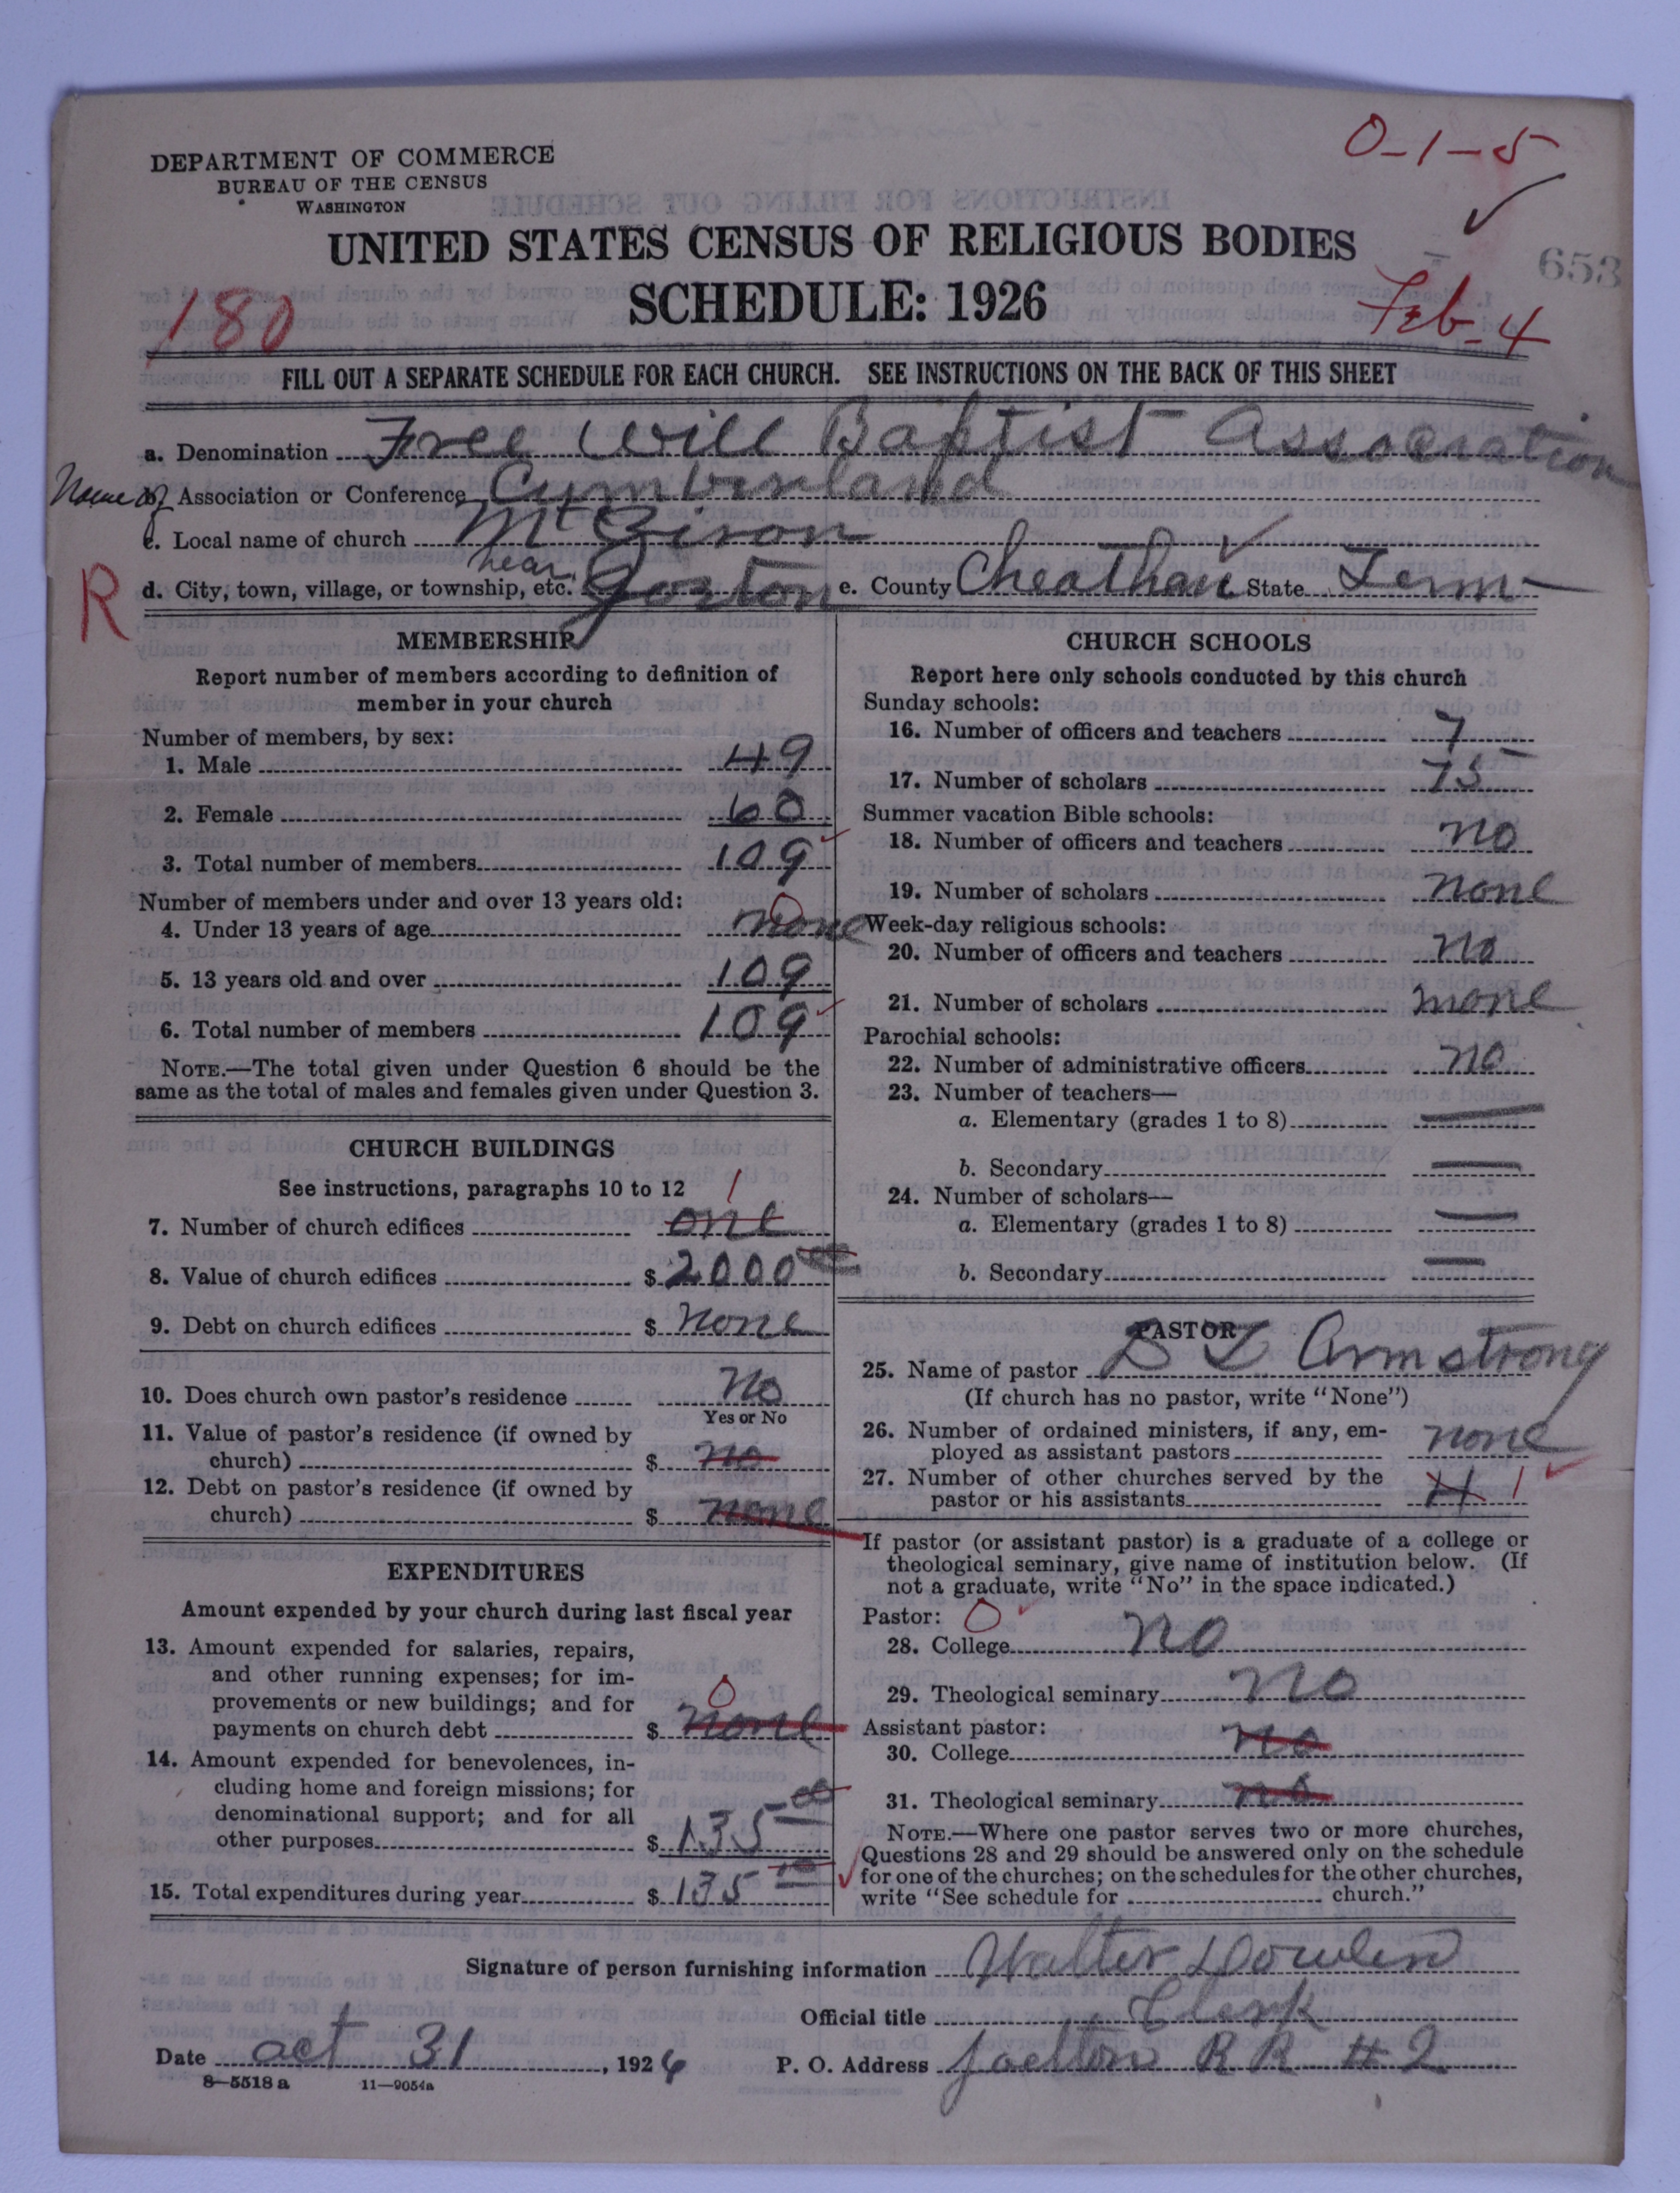 0-1-5
DEPARTMENT OF COMMERCE
BUREAU OF THE CENSUS
WASHINGTON
UNITED STATES CENSUS OF RELIGIOUS BODIES
653
SCHEDULE: 1926
180
Feb-4
FILL OUT A SEPARATE SCHEDULE FOR EACH CHURCH. SEE INSTRUCTIONS ON THE BACK OF THIS SHEET
a. Denomination Free Will Baptist Association
Name of b. Association or Conference Cumberland
c. Local name of church Mt Zion
R
d. City, town, village, or township, etc. near e. County Cheatham State Tenn
MEMBERSHIP
Report number of members according to definition of
member in your church
Number of members, by sex:
1. Male 49
2. Female 60
3. Total number of members 109
Number of members under and over 13 years old:
4. Under 13 years of age none 0
5. 13 years old and over 109
6. Total number of members 109
NOTE.—The total given under Question 6 should be the
same as the total of males and females given under Question 3.
CHURCH BUILDINGS
See instructions, paragraphs 10 to 12
7. Number of church edifices one 1
8. Value of church edifices $ 2000 00
9. Debt on church edifices $ none
10. Does church own pastor's residence No
Yes or No
11. Value of pastor's residence (if owned by
church) $ no
12. Debt on pastor's residence (if owned by
church) $ none
EXPENDITURES
Amount expended by your church during last fiscal year
13. Amount expended for salaries, repairs,
and other running expenses; for im-
provements or new buildings; and for
payments on church debt $ none 0
14. Amount expended for benevolences, in-
cluding home and foreign missions; for
denominational support; and for all
other purposes $ 135 00
15. Total expenditures during year $ 135 00
CHURCH SCHOOLS
Report here only schools conducted by this church
Sunday schools:
16. Number of officers and teachers 7
17. Number of scholars 75
Summer vacation Bible schools:
18. Number of officers and teachers no
19. Number of scholars none
Week-day religious schools:
20. Number of officers and teachers no
21. Number of scholars none
Parochial schools:
22. Number of administrative officers no
23. Number of teachers—
a. Elementary (grades 1 to 8) —
b. Secondary —
24. Number of scholars—
a. Elementary (grades 1 to 8) —
b. Secondary —
PASTOR
25. Name of pastor Armstrong
(If church has no pastor, write "None")
26. Number of ordained ministers, if any, em-
ployed as assistant pastors none
27. Number of other churches served by the
pastor or his assistants 1
If pastor (or assistant pastor) is a graduate of a college or
theological seminary, give name of institution below. (If
not a graduate, write "No" in the space indicated.)
Pastor: 0
28. College no
29. Theological seminary no
Assistant pastor:
30. College no
31. Theological seminary no
NOTE.—Where one pastor serves two or more churches,
Questions 28 and 29 should be answered only on the schedule
for one of the churches; on the schedules for the other churches,
write "See schedule for church."
Signature of person furnishing information Walter Dowlen
Official title Clerk
Date oct 31, 1926 P. O. Address Joelton R R #2
8—5518 a 11—9054a